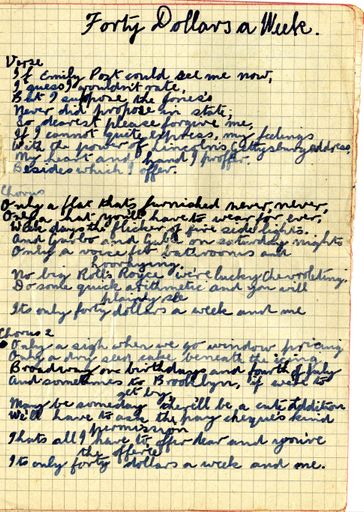 Forty Dollars a Week.
Verse
If Emily Post could see me now,
I guess I wouldn't rate,
But I suppose the Jones's
Never did propose in state;
So dearest please forgive me,
If I cannot quite express, my feelings
With the power of Lincoln's Gettysburg address,
My heart and hand I proffer.
Besides which I offer.
Chorus
Only a flat that's furnished never, never,
Only a hat you'll have to wear for ever,
Week days the flicker of five side lights.
And Garbo and Gable on saturday nights
Only a bathrooms and
No big Rolls Royce we're lucky Chevroleting.
Do some quick arithmetic and you will
plainly see
Its only forty dollars a week and me
Chorus 2
Only a sigh when we go window pricing
Only a dry seed cake beneath the icing
Broadway on birthdays and fourth of July
And sometimes to Brooklyn, if we're to
get by,
May be someday they'll be a cute addition
We'll have to ask the pay cheque's kind
permission
Thats all I have to offer dear and you're
the offeree
Its only forty dollars a week and me.